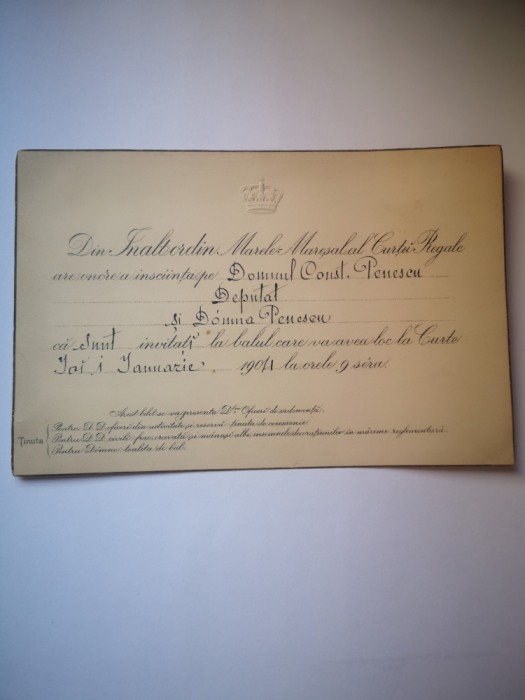 Din Înalt ordin Marele Mareșal al Curței Regale
are onóre a însciința pe Domnul Const. Penescu
Deputat
și Dómna Penescu
că sunt invitați la balul care va avea loc la Curte
Joi 1 Ianuarie 1904 la orele 9 séra.
Acest bilet se va presenta D-lor Oficeri de
Ținuta
Pentru D.D. oficeri din activitate și reservă ținuta de ceremonie.
Pentru D.D. civili frac, cravată și mănuși albe, insemnele decorațiunilor în mărime reglementară.
Pentru Dómne toaleta de bal.